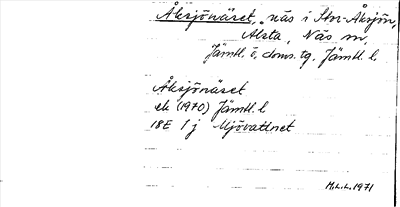 Åksjönäset, näs i Stor-Åksjön,
Alsta, Näs sn,
Jämtl. ö. doms. tg. Jämtl. l.
Åksjönäset
ek (1970) Jämtl. l
18E 1 j Mjövattnet
M.L.L. 1971